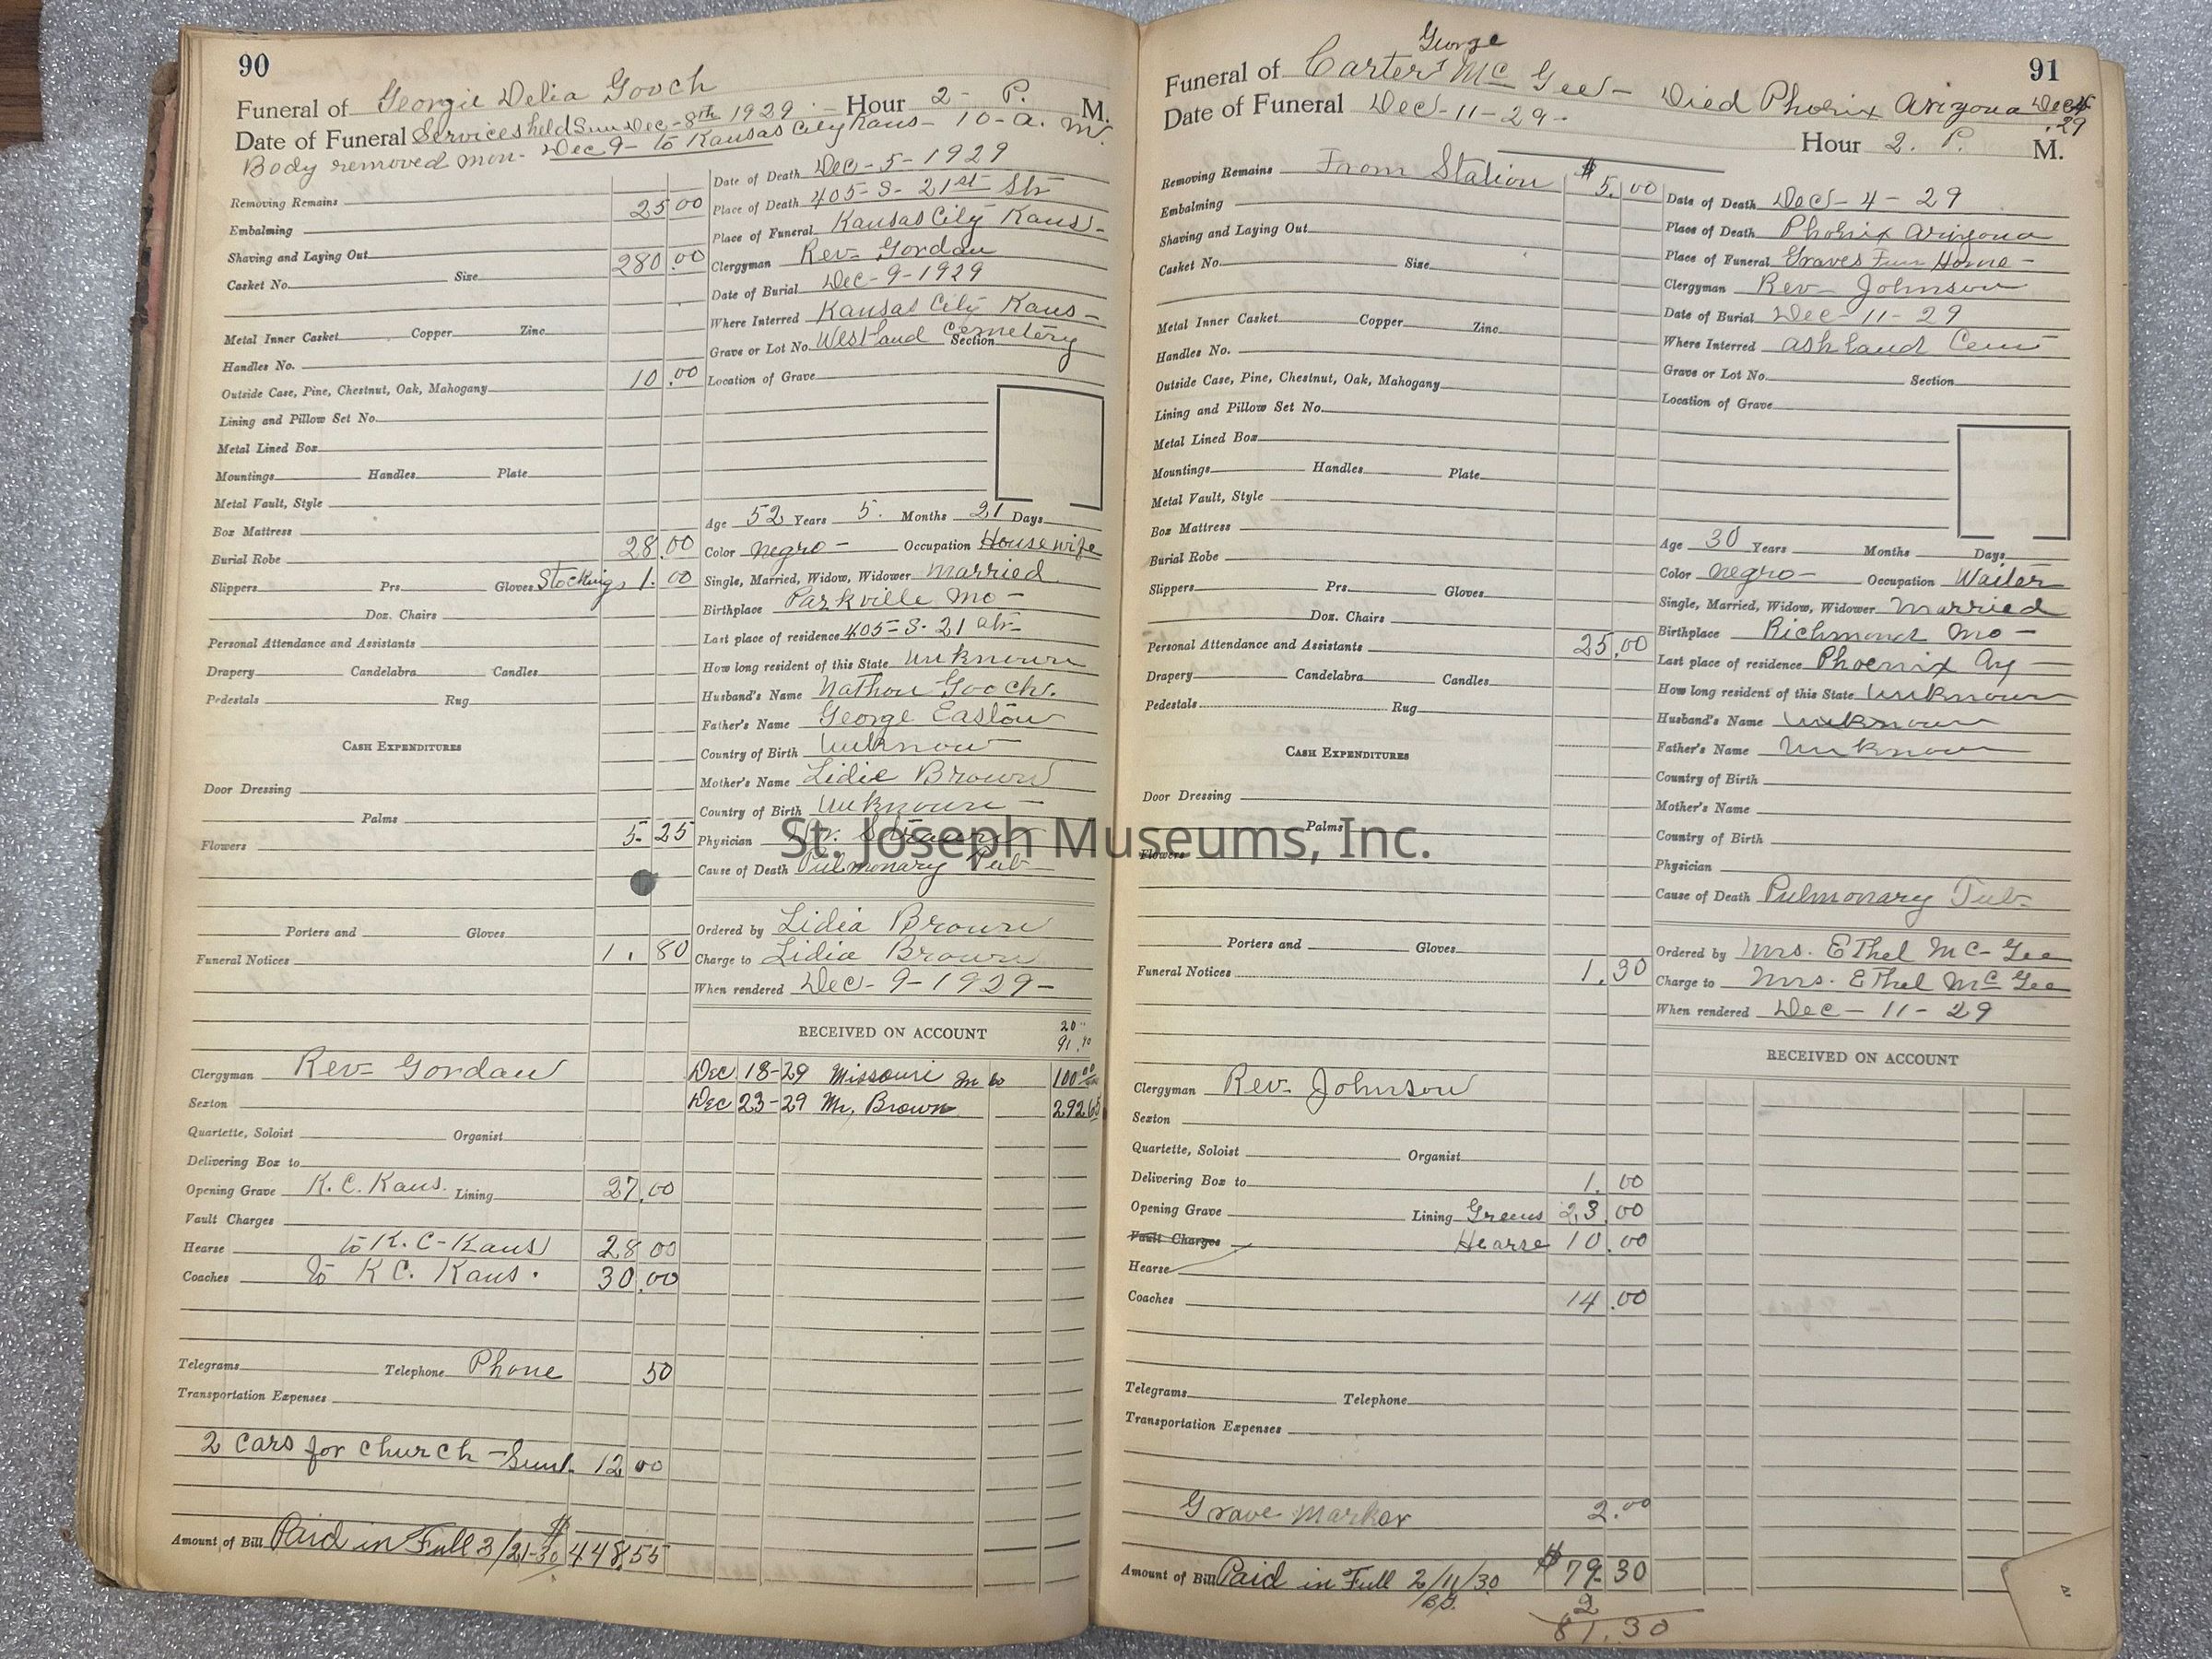 90
Funeral of Georgie Delia Gooch Hour 2 - P. M.
Date of Funeral Services held Sun Dec - 8th 1929 -
Body removed Mon - Dec 9 - to Kansas City Kans - 10 - a. m.
Removing Remains
Embalming 25 00
Shaving and Laying Out
Casket No. Size 280.00
Metal Inner Casket Copper Zinc
Handles No.
Outside Case, Pine, Chestnut, Oak, Mahogany 10.00
Lining and Pillow Set No.
Metal Lined Box
Mountings Handles Plate
Metal Vault, Style
Box Mattress
Burial Robe 28.00
Slippers Prs. Gloves Stockings 1.00
Doz. Chairs
Personal Attendance and Assistants
Drapery Candelabra Candles
Pedestals Rug
CASH EXPENDITURES
Door Dressing
Palms
Flowers 5 - 25
Porters and Gloves
Funeral Notices 1.80
Clergyman Rev - Gordan
Sexton
Quartette, Soloist Organist
Delivering Box to
Opening Grave K. C. Kans. Lining 27.00
Vault Charges
Hearse to K. C - Kans 28 00
Coaches to K C. Kans. 30.00
Telegrams Telephone Phone 50
Transportation Expenses
2 Cars for Church - Sun. 12 00
Amount of Bill Paid in Full 3/21-30 $448.55
Date of Death Dec - 5 - 1929
Place of Death 405 - S - 21st Str
Place of Funeral Kansas City Kans -
Clergyman Rev - Gordan
Date of Burial Dec - 9 - 1929
Where Interred Kansas City Kans -
Grave or Lot No. Westland Cemetery Section
Location of Grave
Age 52 Years 5. Months 21 Days
Color Negro - Occupation Housewife
Single, Married, Widow, Widower Married
Birthplace Parkville Mo -
Last place of residence 405 - S - 21 str -
How long resident of this State Unknown
Husband's Name Nathon Gooch.
Father's Name George Easton
Country of Birth Unknow
Mother's Name Lidie Brown
Country of Birth Unknown -
Physician Dr.
Cause of Death Pulmonary Tub -
Ordered by Lidia Brown
Charge to Lidia Brown
When rendered Dec - 9 - 1929 -
RECEIVED ON ACCOUNT 20
Dec 18-29 Missouri In Co 100 00
Dec 23-29 Mr. Brown 292 65
91
George
Funeral of Carter McGee - Died Phoenix Arizona Dec 4 . 29
Date of Funeral Dec - 11 - 29 -
Hour 2. P. M.
Removing Remains From Station $5.00
Embalming
Shaving and Laying Out
Casket No. Size
Metal Inner Casket Copper Zinc
Handles No.
Outside Case, Pine, Chestnut, Oak, Mahogany
Lining and Pillow Set No.
Metal Lined Box
Mountings Handles Plate
Metal Vault, Style
Box Mattress
Burial Robe
Slippers Prs. Gloves
Doz. Chairs
Personal Attendance and Assistants 25.00
Drapery Candelabra Candles
Pedestals Rug
CASH EXPENDITURES
Door Dressing
Palms
Flowers
Porters and Gloves
Funeral Notices 1.30
Clergyman Rev - Johnson
Sexton
Quartette, Soloist Organist
Delivering Box to 1.00
Opening Grave Lining Greens 23.00
Vault Charges Hearse 10.00
Hearse
Coaches 14.00
Telegrams Telephone
Transportation Expenses
Grave Marker 2.00
Amount of Bill Paid in Full 2/11/30 $79.30
B.G. 2
81.30
Date of Death Dec - 4 - 29
Place of Death Phoenix Arizona
Place of Funeral Graves Fun Home -
Clergyman Rev - Johnson
Date of Burial Dec - 11 - 29
Where Interred Ashland Cem
Grave or Lot No. Section
Location of Grave
Age 30 Years Months Days
Color Negro - Occupation Waiter
Single, Married, Widow, Widower Married
Birthplace Richmond Mo -
Last place of residence Phoenix
How long resident of this State Unknown
Husband's Name Unknown
Father's Name Unknown
Country of Birth
Mother's Name
Country of Birth
Physician
Cause of Death Pulmonary Tub -
Ordered by Mrs. Ethel Mc-Gee
Charge to Mrs. Ethel McGee
When rendered Dec - 11 - 29
RECEIVED ON ACCOUNT
St. Joseph Museums, Inc.